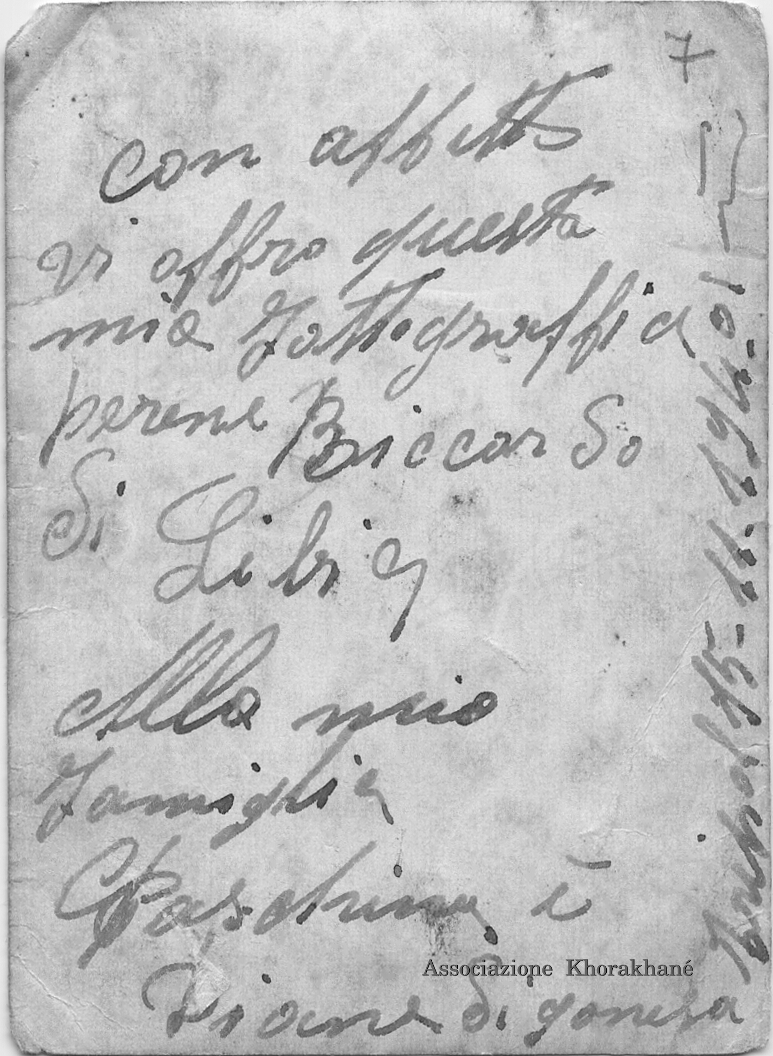 con affetto
vi offro questa
mia fottograffia
perene Biccordo
di Libia
Alla mio
famiglia
Paschina è
Viane di
7
Associazione Khorakhané